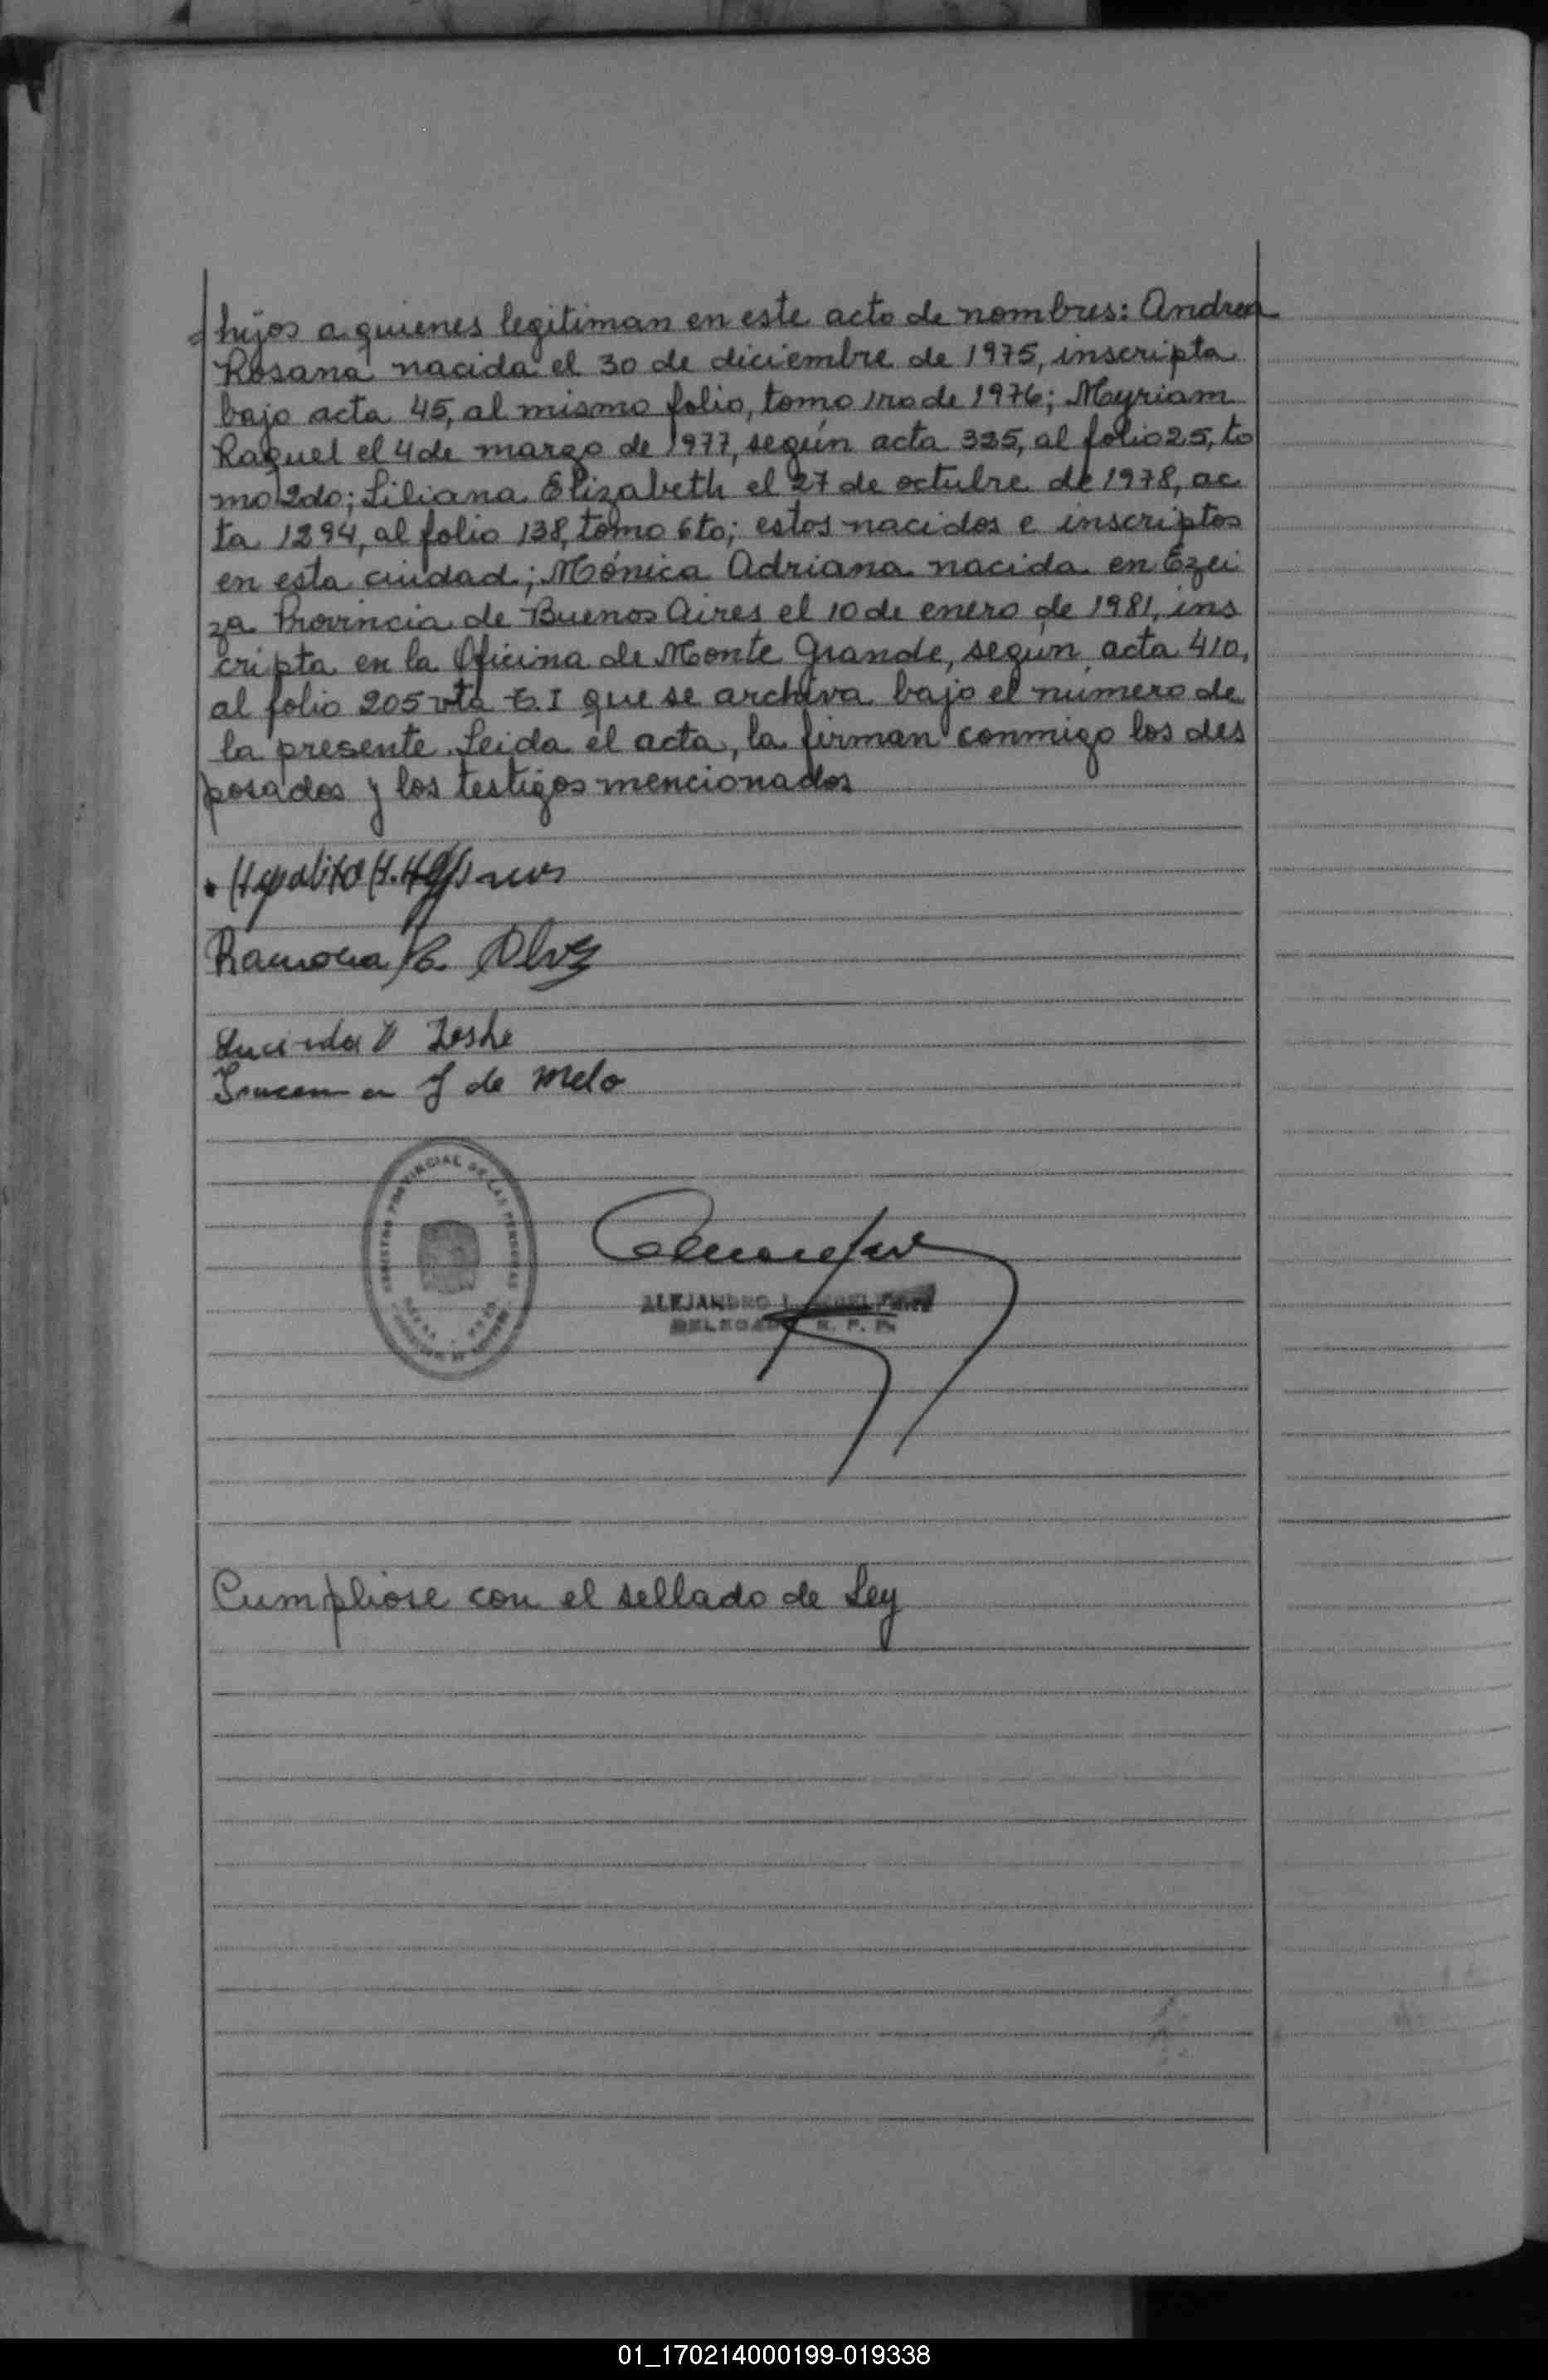 hijos a quienes legitiman en este acto de nombres: Andrea
Rosana nacida el 30 de diciembre de 1975, inscripta
bajo acta 45, al mismo folio, tomo 1ro de 1976; Meyriam
Raquel el 4 de marzo de 1977, según acta 335, al folio 25, to
mo 2do; Liliana Elizabeth el 27 de octubre de 1978, ac
ta 1294, al folio 138, tomo 6to; estos nacidos e inscriptos
en esta ciudad; Mónica Adriana nacida en Ezei
za Provincia de Buenos Aires el 10 de enero de 1981, ins
cripta en la Oficina de Monte Grande, según acta 410,
al folio 205 vta T. I que se archiva bajo el número de
la presente. Leida el acta, la firman conmigo los des
posados y los testigos mencionados
Hipolito H.
Ramona
Lucinda
de Melo
REGISTRO PROVINCIAL DE LAS PERSONAS
ALEJANDRO
DELEGADO R. P. P.
Cumpliose con el sellado de Ley
01_170214000199-019338